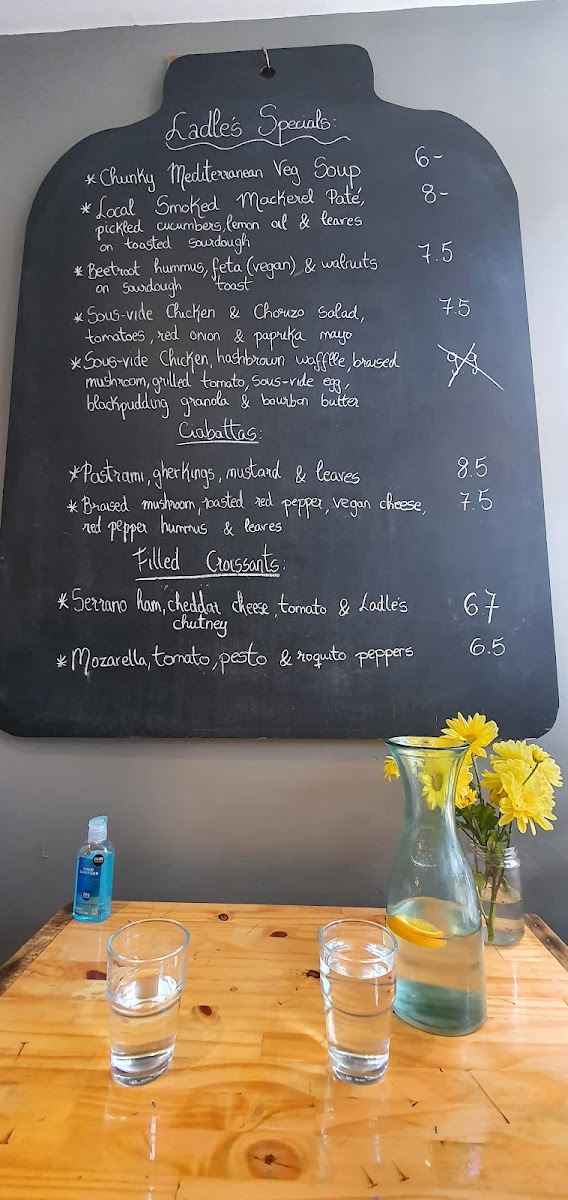 Ladle's Specials:
* Chunky Mediterranean Veg Soup 6-
* Local Smoked Mackerel Paté, 8-
pickled cucumbers, lemon oil & leaves
on toasted sourdough
* Beetroot hummus, feta (vegan) & walnuts 7.5
on sourdough toast
* Sous-vide Chicken & Chorizo salad, 7.5
tomatoes, red onion & paprika mayo
* Sous-vide Chicken, hashbrown waffle, braised
mushroom, grilled tomato, sous-vide egg,
blackpudding granola & bourbon butter
Ciabattas:
* Pastrami, gherkings, mustard & leaves 8.5
* Braised mushroom, roasted red pepper, vegan cheese, 7.5
red pepper hummus & leaves
Filled Croissants:
* Serrano ham, cheddar cheese, tomato & Ladle's 67
chutney
* Mozarella, tomato, pesto & roquito peppers 6.5
HAND
SANITISER